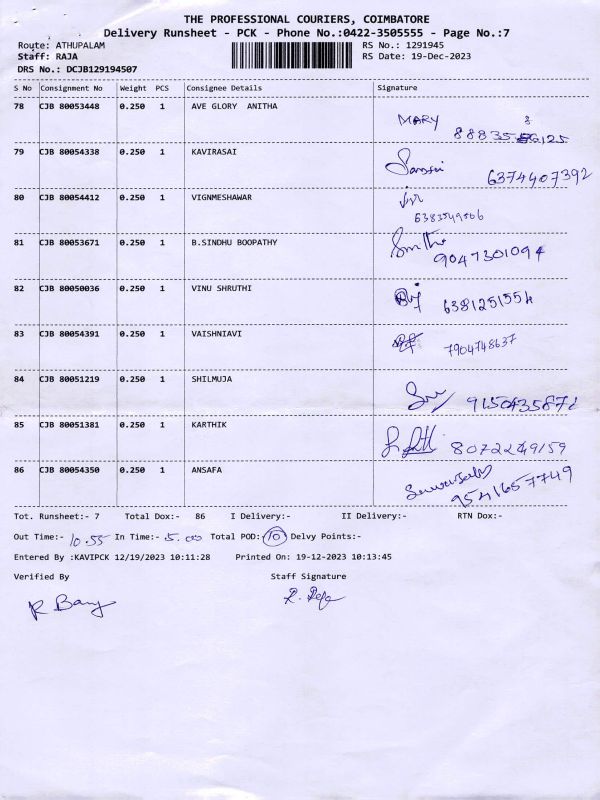 THE PROFESSIONAL COURIERS, COIMBATORE
Delivery Runsheet - PCK - Phone No.:0422-3505555 - Page No.:7
Route: ATHUPALAM RS No.: 1291945
Staff: RAJA RS Date: 19-Dec-2023
DRS No.: DCJB129194507
S No Consignment No Weight PCS Consignee Details Signature
78 CJB 80053448 0.250 1 AVE GLORY ANITHA
MARY
79 CJB 80054338 0.250 1 KAVIRASAI
6374407392
80 CJB 80054412 0.250 1 VIGNMESHAWAR
81 CJB 80053671 0.250 1 B.SINDHU BOOPATHY
9047301094
82 CJB 80050036 0.250 1 VINU SHRUTHI
6381251554
83 CJB 80054391 0.250 1 VAISHNIAVI
7904748637
84 CJB 80051219 0.250 1 SHILMUJA
85 CJB 80051381 0.250 1 KARTHIK
86 CJB 80054350 0.250 1 ANSAFA
Tot. Runsheet:- 7 Total Dox:- 86 I Delivery:- II Delivery:- RTN Dox:-
Out Time:- 10.55 In Time:- 5.00 Total POD: 10 Delvy Points:-
Entered By :KAVIPCK 12/19/2023 10:11:28 Printed On: 19-12-2023 10:13:45
Verified By Staff Signature